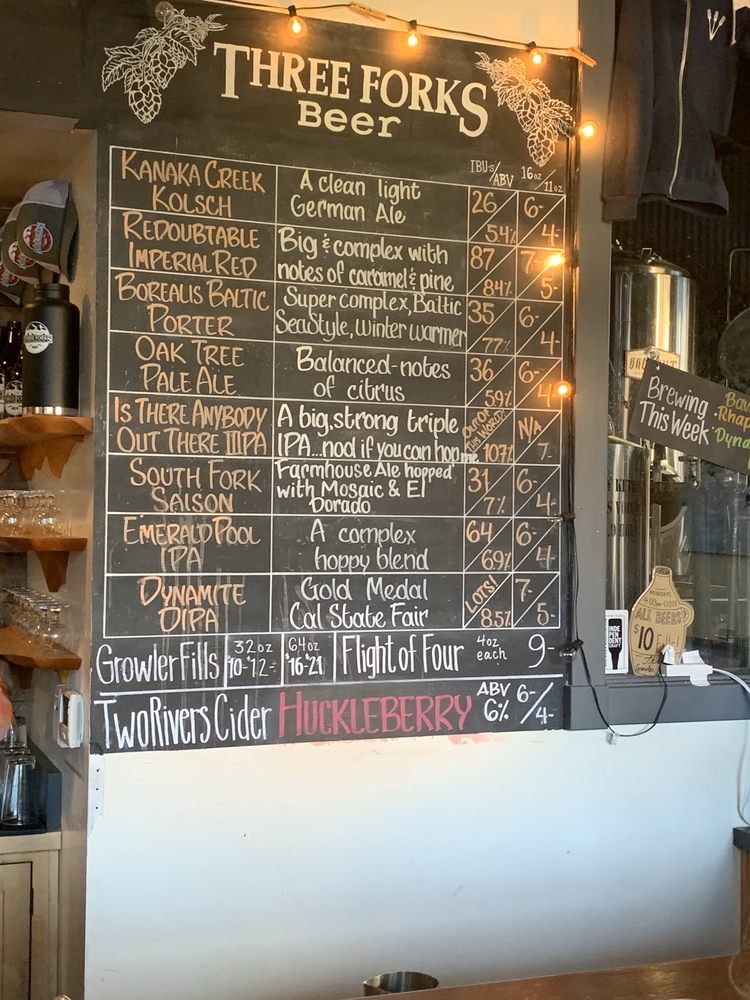 THREE FORKS
Beer
IBUs/ABV 16oz/11oz
KANAKA CREEK KOLSCH
A clean light
German Ale
26 5.4% 6- 4-
REDOUBTABLE IMPERIAL RED
Big & complex with
notes of caramel & pine
87 8.4% 7- 5-
BOREALIS BALTIC PORTER
Super complex, Baltic
Sea Style, winter warmer
35 7.7% 6- 4-
OAK TREE PALE ALE
Balanced-notes
of citrus
36 5.9% 6- 4-
IS THERE ANYBODY OUT THERE IIIPA
A big, strong triple
IPA...nod if you can hop me
OUT OF THIS WORLD! 10.7% N/A 7-
SOUTH FORK SAISON
Farmhouse Ale hopped
with Mosaic & El
Dorado
31 7% 6- 4-
EMERALD POOL IPA
A complex
hoppy blend
64 6.9% 6- 4-
DYNAMITE DIPA
Gold Medal
Cal State Fair
LOTS! 8.5% 7- 5-
Growler Fills 32oz 10-12- 64oz 16-21 Flight of Four 4oz each 9-
Two Rivers Cider HUCKLEBERRY ABV 6% 6-/4-
Brewing
This Week
ALL BEERS
$10
INDEPENDENT
CRAFT